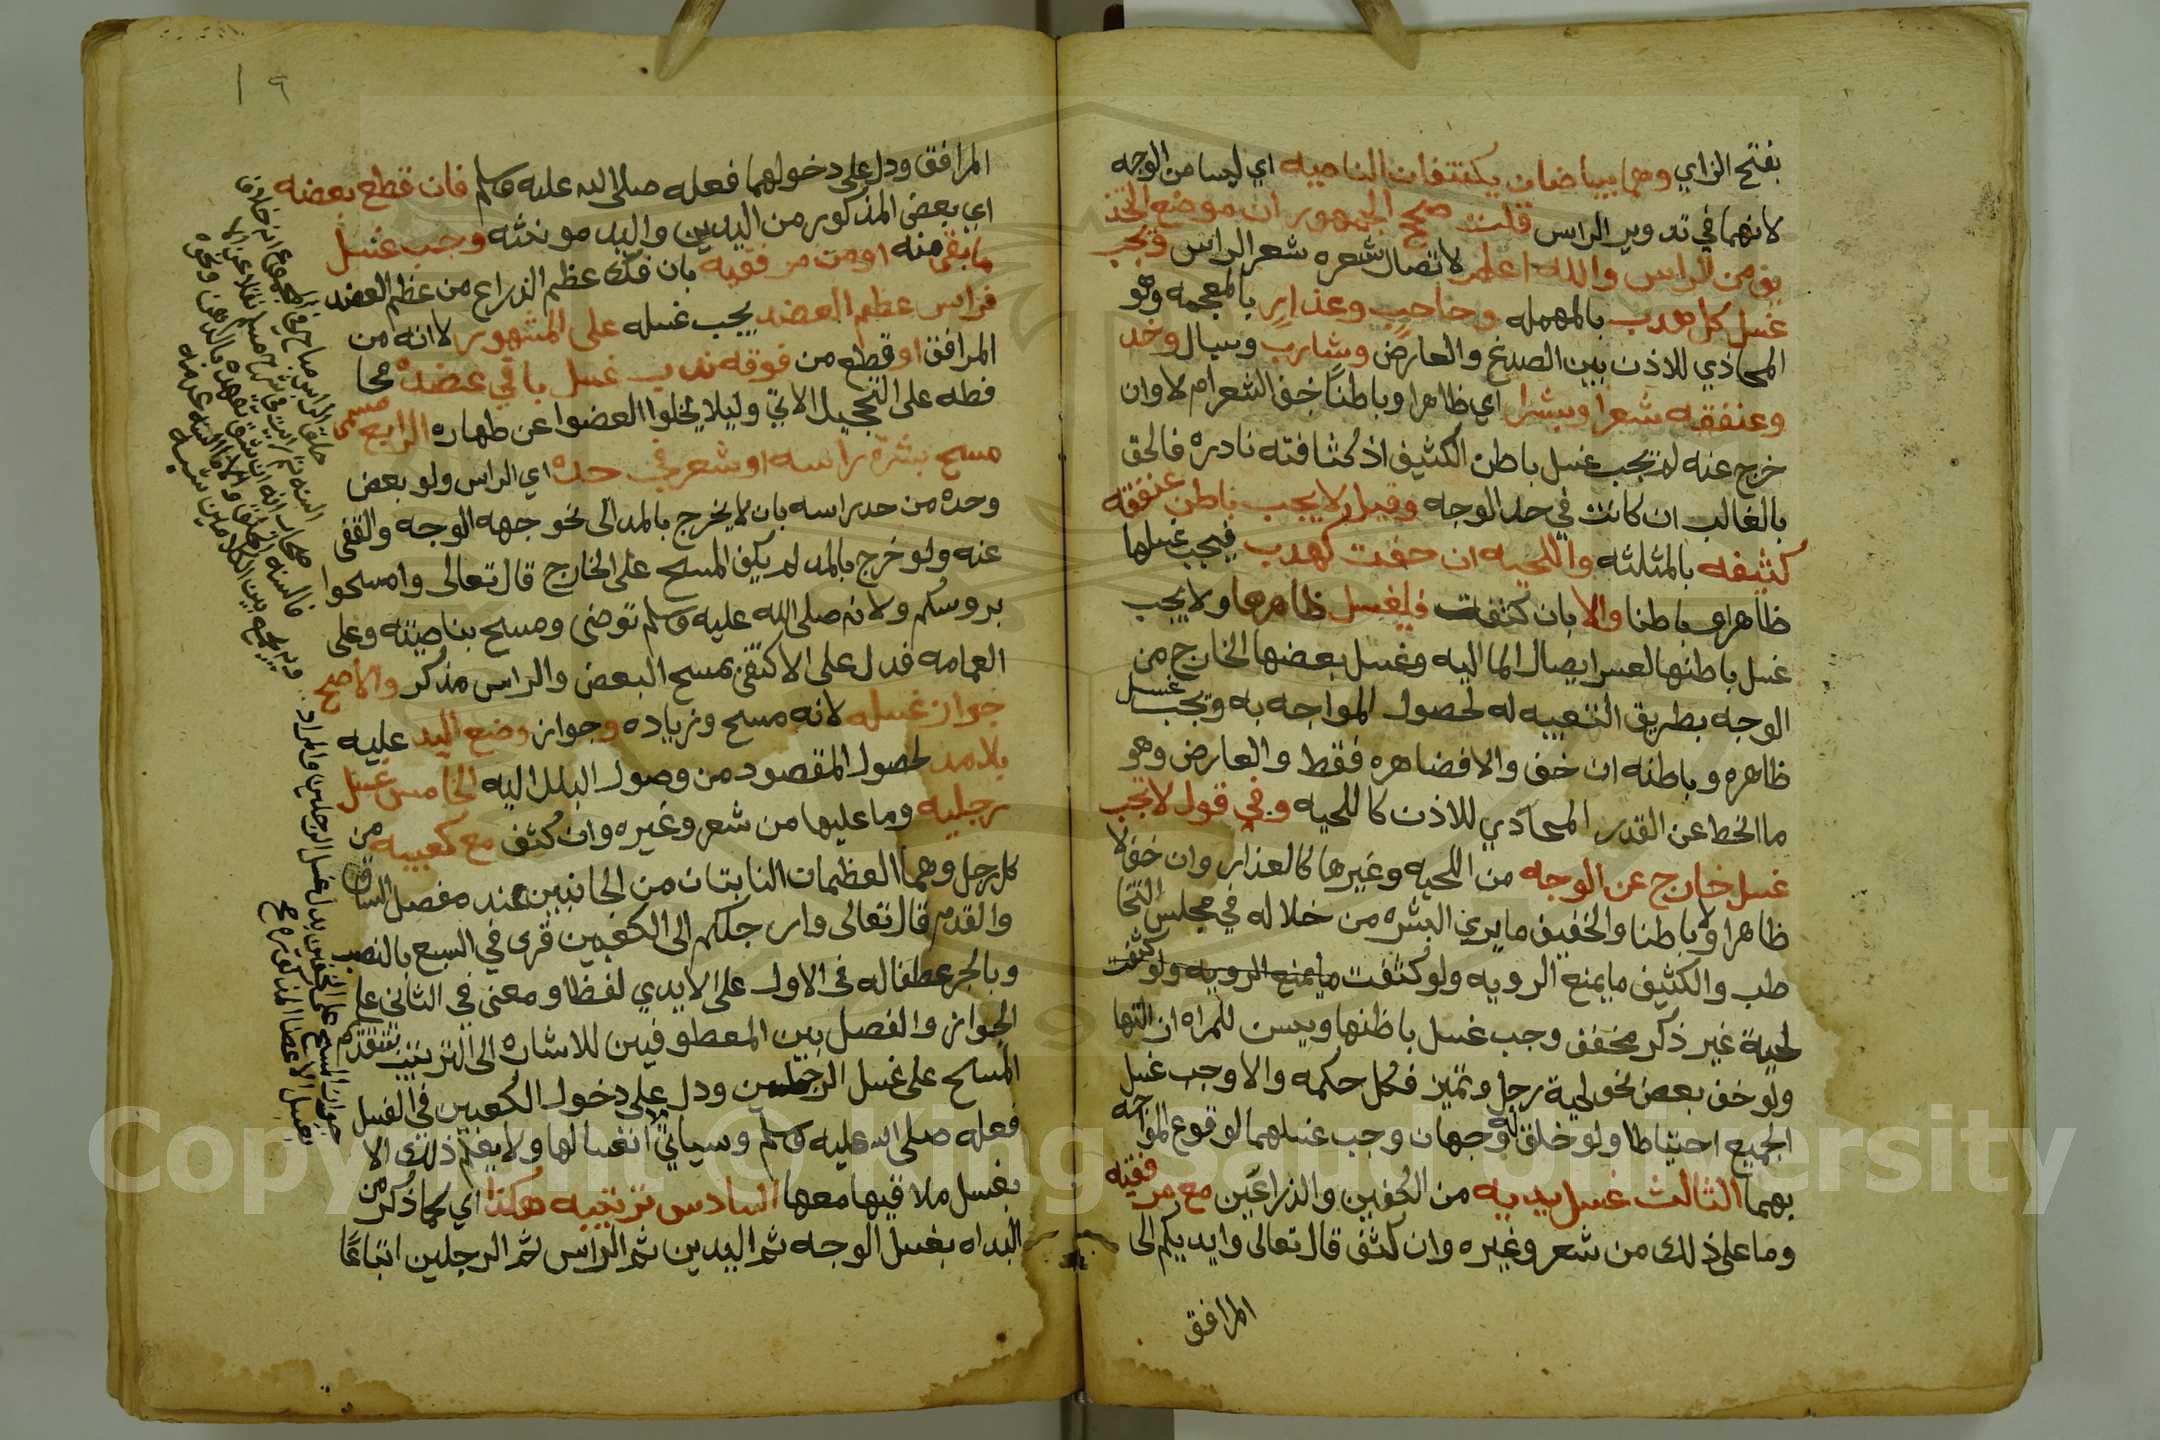 بفتح الزاي وهما بياضان يكتنفان الناصيه اي ليسا من الوجه
لانهما في تدوير الراس قلت صحح الجمهور ان موضع التحذ
يف من الراس والله اعلم لاتصال شعره شعر الراس ويجب
غسل كل هدب بالمهمله وحاجب وعذار بالمعجمه وهو
المحاذي للاذن بين الصدغ والعارض وشارب وسبال وخد
وعنفقه شعرا وبشرا اي ظاهرا وباطنا خف الشعر ام لا وان
خرج عنه لم يجب غسل باطن الكثيف اذ كثافته نادره فالحق
بالغالب ان كانت في حد الوجه وقيل لا يجب باطن عنفقه
كثيفه بالمثلثه واللحيه ان خفت كهدب فيجب غسلها
ظاهرا وباطنا والا بان كثفت فليغسل ظاهرها ولا يجب
غسل باطنها لعسر ايصال الما اليه وغسل بعضها الخارج من
الوجه بطريق التبعيه له لحصول المواجه به ويجب غسل
ظاهره وباطنه ان خف والا فضاهره فقط والعارض وهو
ما انحط عن القدر المحاذي للاذن كاللحيه وفي قول لا يجب
غسل خارج عن الوجه من اللحيه وغيرها كالعذار وان خف لا
ظاهرا ولا باطنا والخفيف ما يري البشره من خلاله في مجلس التخا
طب والكثيف ما يمنع الرويه ولو كثفت ما يمنع الرويه ولو كثفت
لحية غير ذكر مخفف وجب غسل باطنها ويسن للمراه ازالتها
ولو خف بعض نحو لحية رجل وتميز فكل حكمه والا وجب غسل
الجميع احتياطا ولو خلق له وجهان وجب غسلهما لوقوع المواجه
بهما الثالث غسل يديه من الكفين والذراعين مع مرفقيه
وما على ذلك من شعر وغيره وان كثف قال تعالى وايديكم الى
المرافق
١٩
المرافق ودل على دخولهما فعله صلى الله عليه وسلم فان قطع بعضه
اي بعض المذكور من اليدين واليد مونثه وجب غسل
ما بقى منه او من مرفقيه بان فك عظم الذراع من عظم العضد
فراس عظم العضد يجب غسله على المشهور لانه من
المرافق او قطع من فوقه ندب غسل باقي عضده محا
فظه على التحجيل الاتي وليلا يخلوا العضوا عن طهاره الرابع مسمى
مسح بشرة راسه او شعر في حده اي الراس ولو بعض
وحده من حد راسه بان لا يخرج بالمد الى نحو جهه الوجه والقفى
عنه ولو خرج بالمد لم يكف المسح على الخارج قال تعالى وامسحوا
بروسكم ولانه صلى الله عليه وسلم توضى ومسح بناصيته وعلى
العمامه فدل على الاكتفى بمسح البعض والراس مذكر والاصح
جواز غسله لانه مسح وزياده وجواز وضع اليد عليه
بلا مد لحصول المقصود من وصول البلل اليه الخامس غسل
رجليه وما عليها من شعر وغيره وان كثف مع كعبيه من
كل رجل وهما العظمان الناتيان من الجانبين عند مفصل الساق
والقدم قال تعالى وارجلكم الى الكعبين قرى في السبع بالنصب
وبالجر عطفا له في الاول على الايدي لفظا ومعنى في الثاني على
الجواز والفصل بين المعطوفين للاشاره الى الترتيب بتقديم
المسح على غسل الرجلين ودل على دخول الكعبين في الغسل
فعله صلى الله عليه وسلم وسياتي انغسالها ولا يعلم ذلك الا
بغسل ملاقيها معها السادس ترتيبه هكذا اي كما ذكر من
البداه بغسل الوجه ثم اليدين ثم الراس ثم الرجلين اتباعا
والمراد بغسل الرجلين
جواز المسح على الخفين بدل غسل الرجلين
Copyright © King Saud University